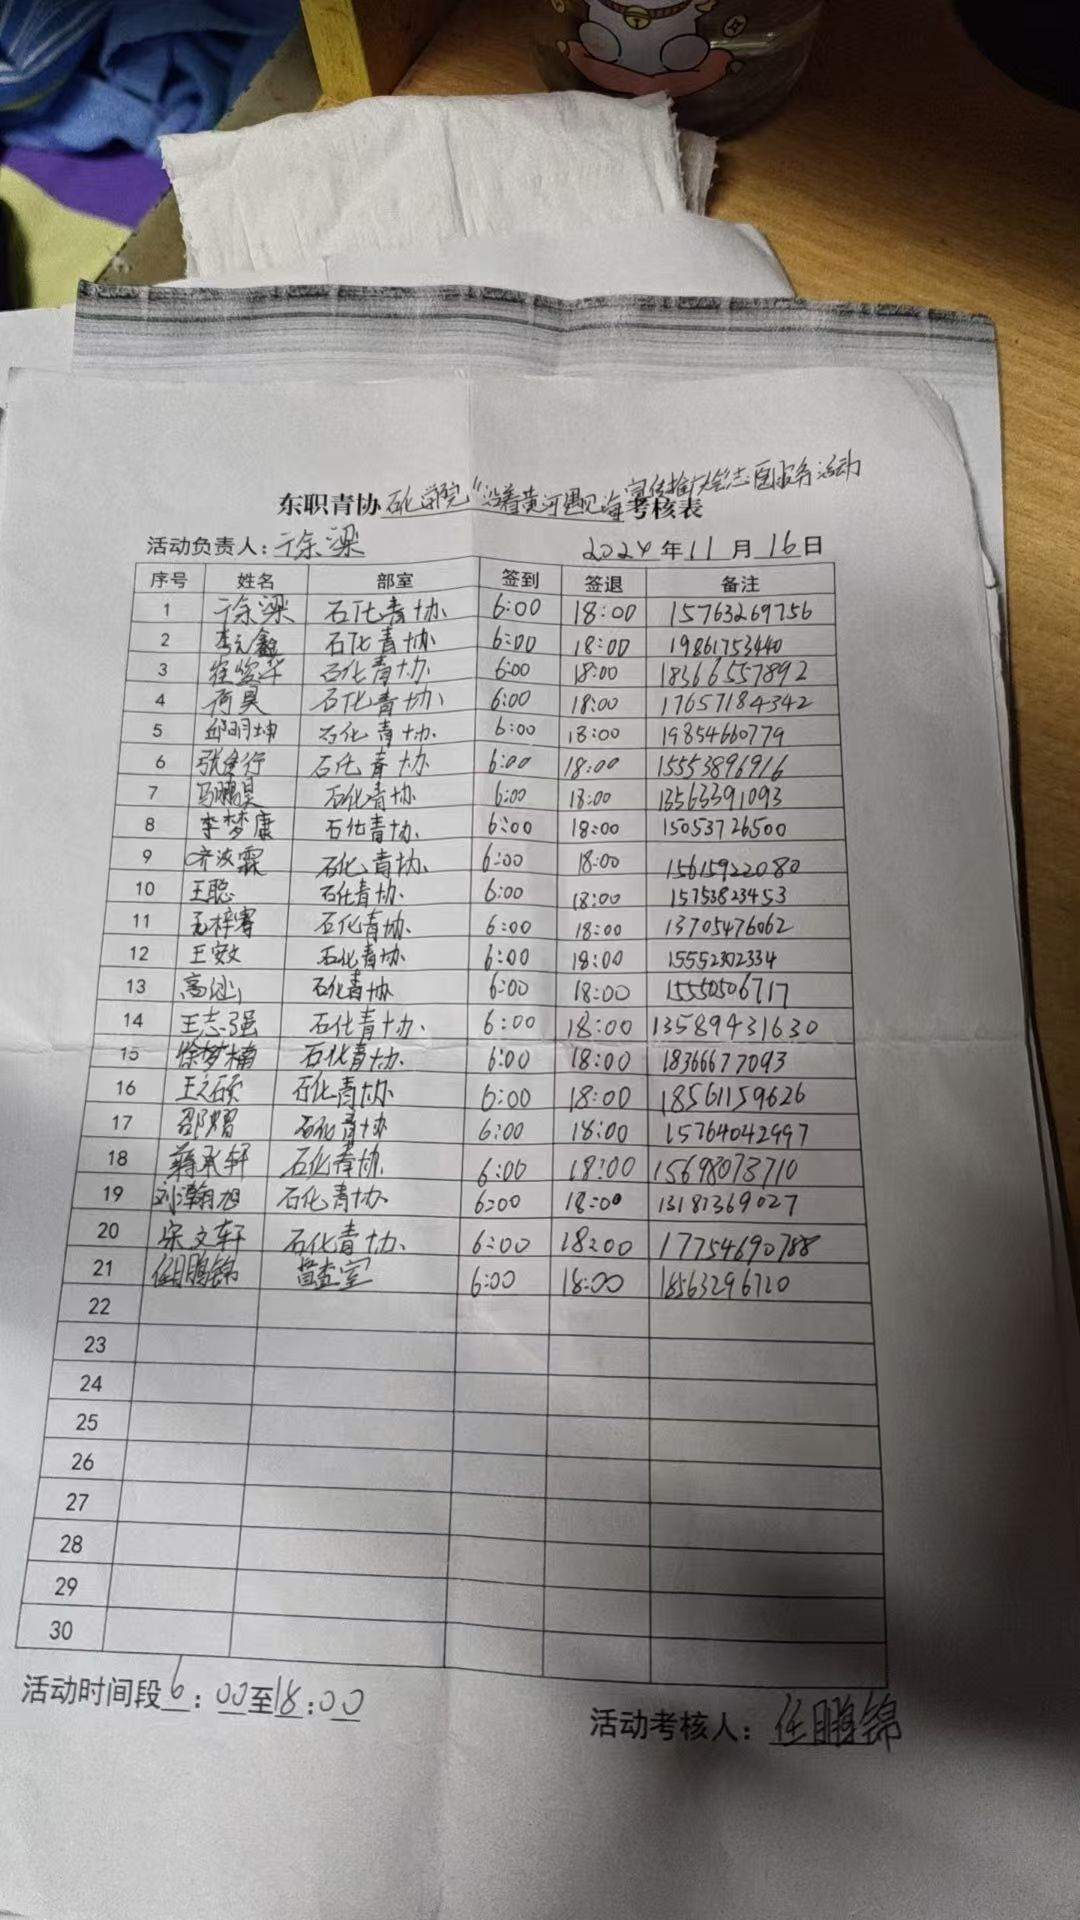 东职青协石化学院“沿着黄河遇见海宣传推广大会志愿服务活动考核表
活动负责人：徐梁 2024年11月16日
序号 姓名 部室 签到 签退 备注
1 徐梁 石化青协 6:00 18:00 15763269756
2 李元鑫 石化青协 6:00 18:00 19861753440
3 崔俊华 石化青协 6:00 18:00 18366557892
4 荷昊 石化青协 6:00 18:00 17657184342
5 邱明坤 石化青协 6:00 18:00 19854660779
6 张金行 石化青协 6:00 18:00 15553896916
7 马鹏昊 石化青协 6:00 18:00 13563391093
8 李梦康 石化青协 6:00 18:00 15053726500
9 齐浚霖 石化青协 6:00 18:00 15615922080
10 王聪 石化青协 6:00 18:00 15753823453
11 孟梓睿 石化青协 6:00 18:00 13705476062
12 王安文 石化青协 6:00 18:00 15552302334
13 高汕 石化青协 6:00 18:00 15550506717
14 王志强 石化青协 6:00 18:00 13589431630
15 徐梦楠 石化青协 6:00 18:00 18366677093
16 王之硕 石化青协 6:00 18:00 18561159626
17 邵熠 石化青协 6:00 18:00 15764042997
18 蒋承轩 石化青协 6:00 18:00 15698073710
19 刘瀚旭 石化青协 6:00 18:00 13181369027
20 宋文轩 石化青协 6:00 18:00 17754690788
21 任鹏锦 督查室 6:00 18:00 18563296720
22
23
24
25
26
27
28
29
30
活动时间段6：00至18：00
活动考核人：任鹏锦